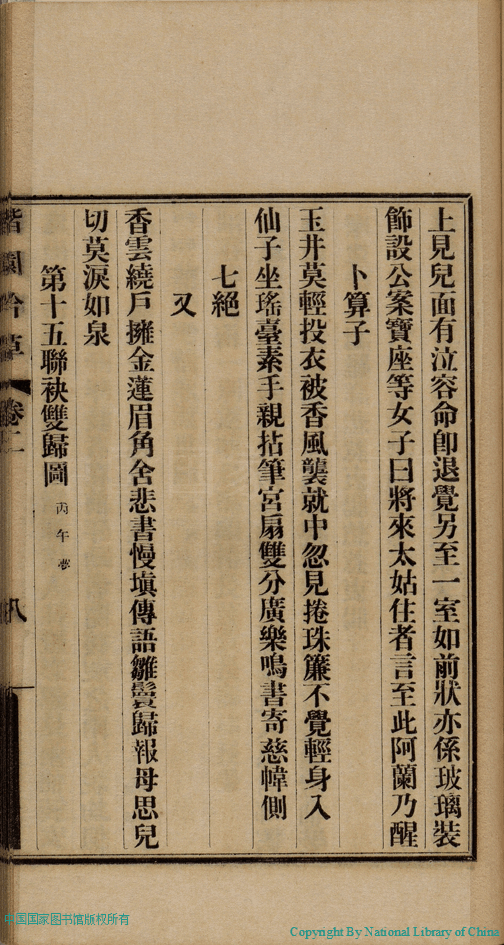 上見兒面有泣容命卽退覺另至一室如前狀亦係玻璃裝
飾設公案寶座等女子曰將來太姑住者言至此阿蘭乃醒
卜算子
玉井莫輕投衣被香風襲就中忽見捲珠簾不覺輕身入
仙子坐瑤臺素手親拈筆宮扇雙分廣樂鳴書寄慈幃側
七絕
又
香雲繞戶擁金蓮眉角含悲書慢塡傳語雛鬟歸報母思兒
切莫淚如泉
第十五聯袂雙歸圖 丙午夢
吟草 卷二 八
中国国家图书馆版权所有
Copyright By National Library of China